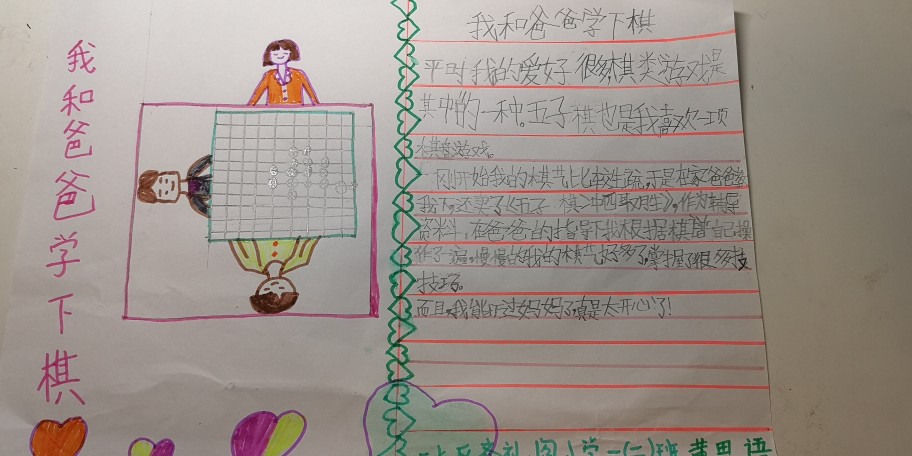 我和爸爸学下棋
我和爸爸学下棋
平时我的爱好很多,棋类游戏是
其中的一种。五子棋也是我喜欢一项
棋类游戏。
一刚开始我的棋艺比较生疏,于是在家爸爸教
我下,还买了《五子棋
作为辅导
资料,在爸爸的指导下我根据棋谱自己操
作了一遍,慢慢的我的棋艺好多了,掌握了很多技
技巧。
而且我能下过妈妈了,真是太开心了!
小学一(二)班